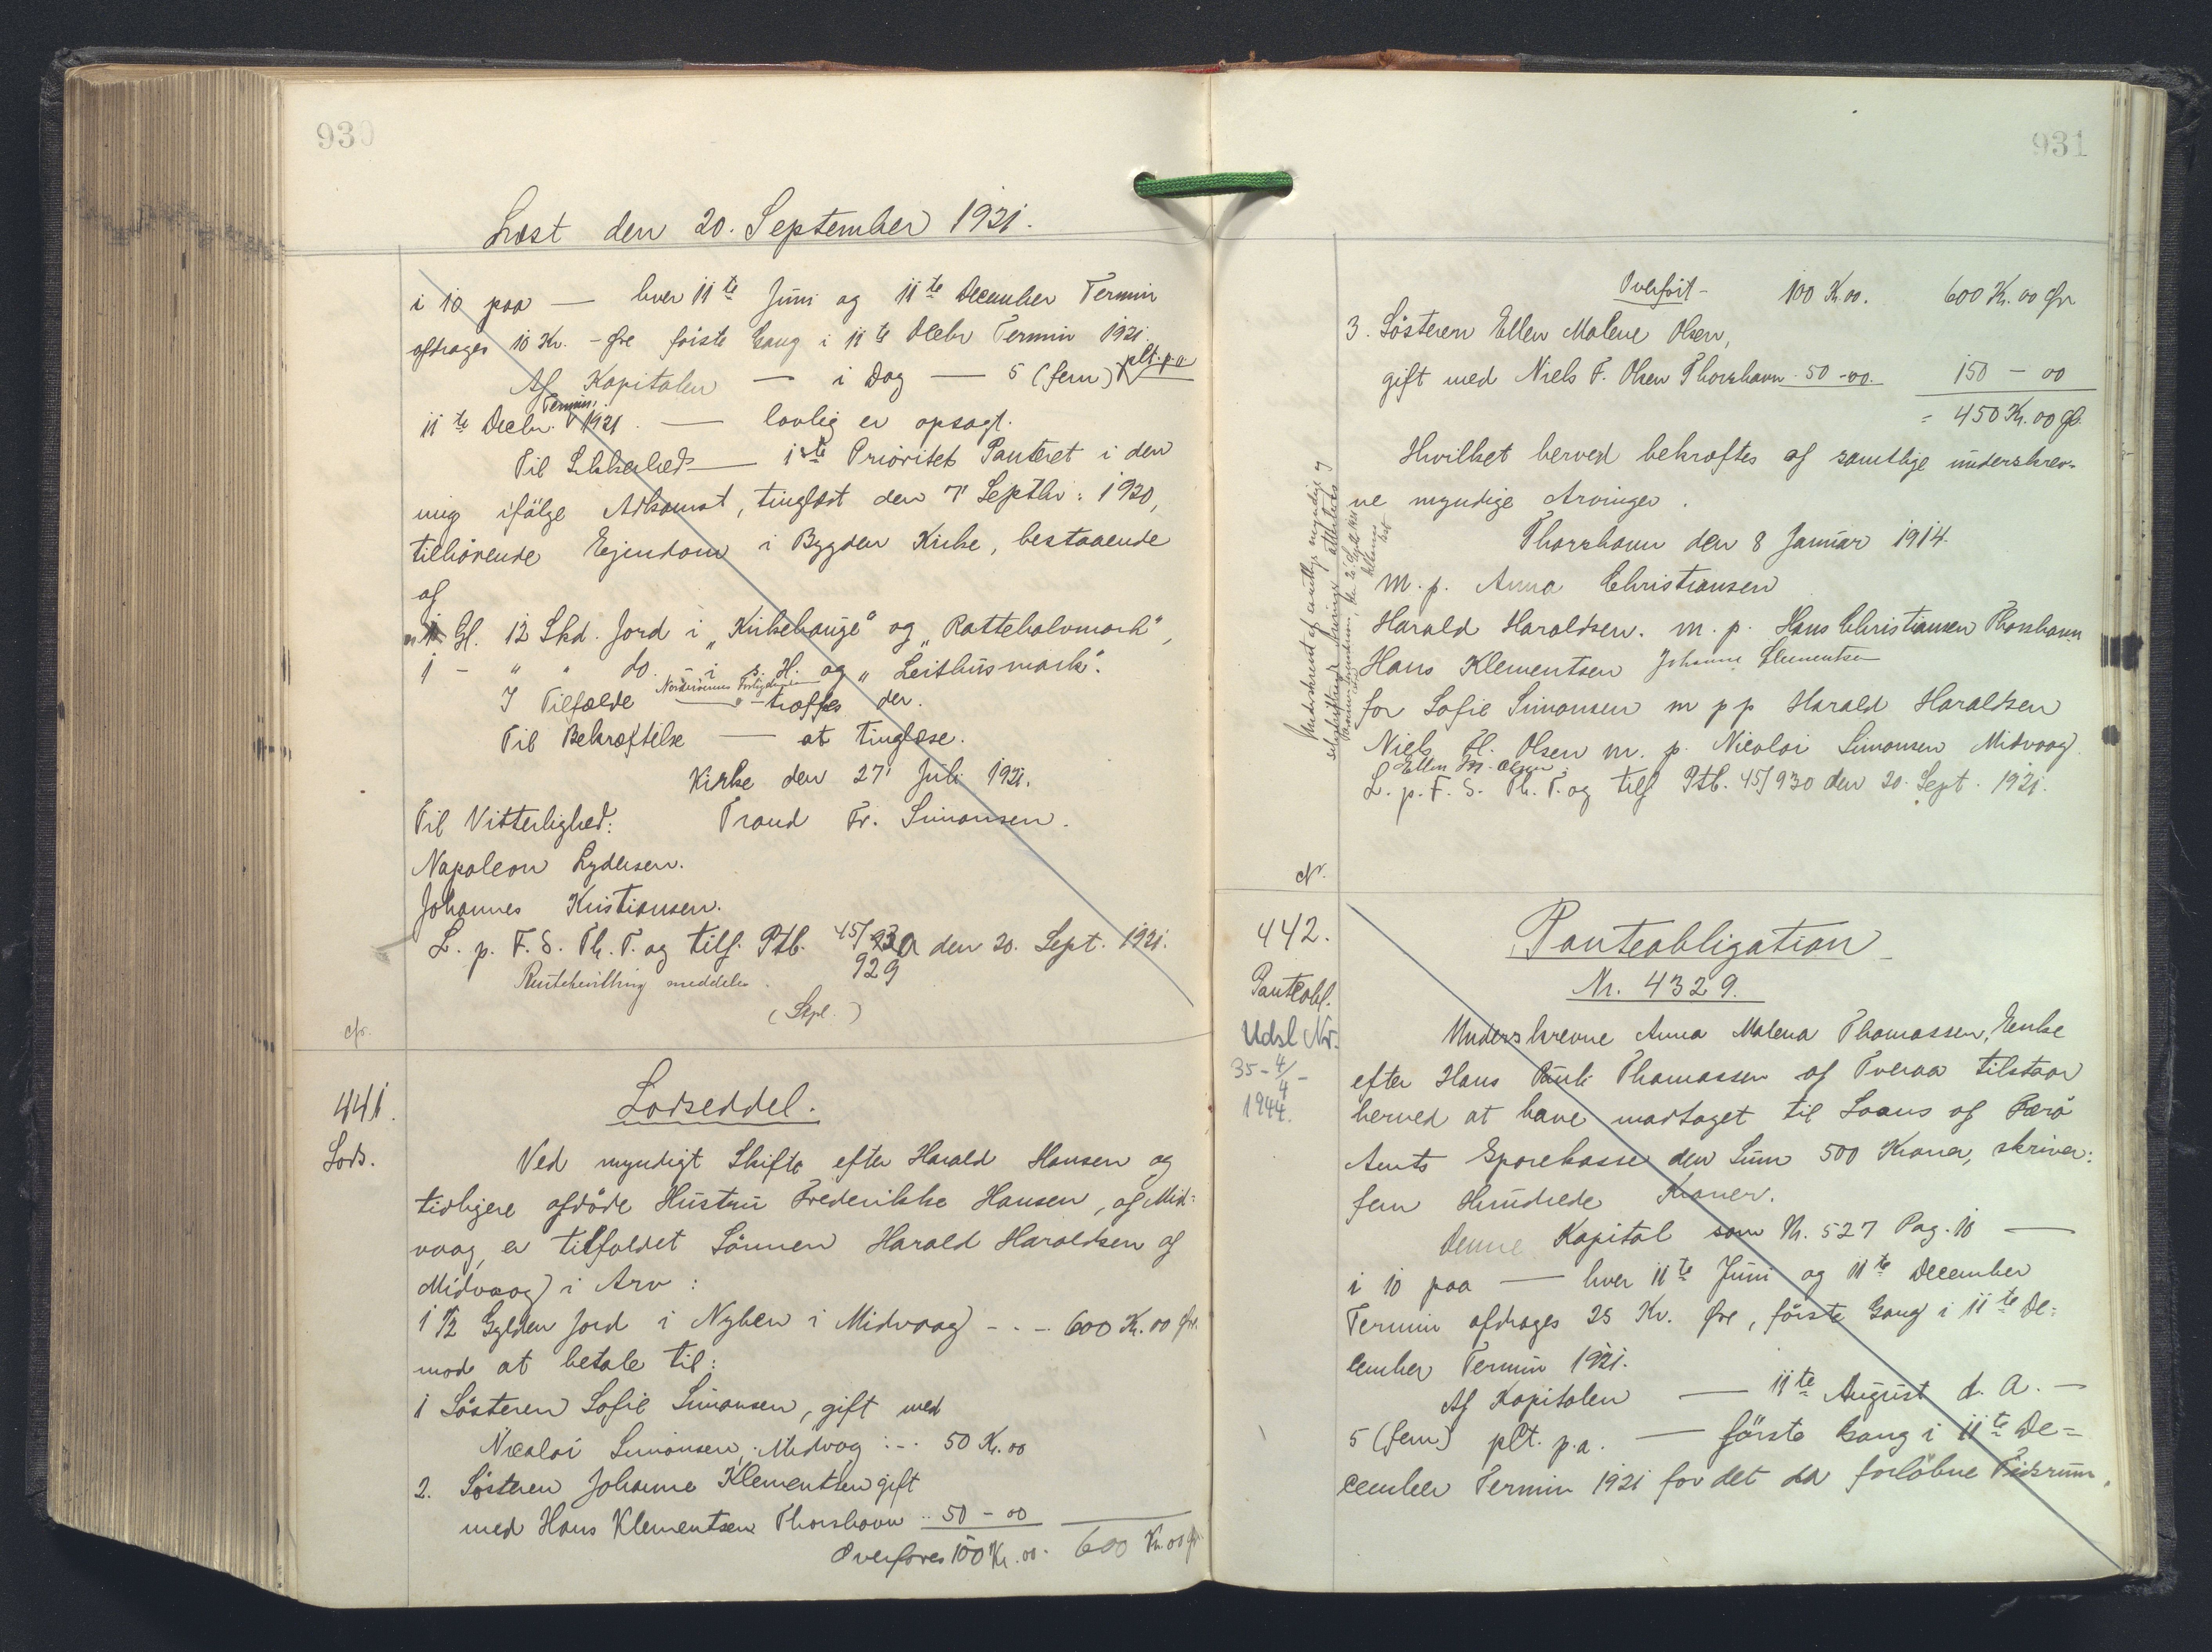 930
Læst den 20. September 1921.
i 10 paa — hver 11te Juni og 11te December Termin
afdrages 10 Kr. - Øre første Gang i 11te Decbr Termin 1921.
Af Kapitalen — i Dag — 5 (fem) plt. p. a
11te Decbr. Termin 1921. — lovlig er opsagt.
Til Sikkerhed — 1ste Prioritets Panteret i den
mig ifølge Adkomst, tinglæst den 7' Septbr: 1920,
tilhørende Ejendom i Bygden Kirke, bestaaende
af
1 Gl. 12 Skd. Jord i "Kirkehauge" og "Rattehalvmark",
1 - " " do. - i s. H. og "Leithusmark".
I Tilfælde — træffes der.
Til Bekræftelse — at tinglæse.
Kirke den 27' Juli 1921.
Til Vitterlighed: Traud Fr. Simonsen.
Napoleon Lydersen.
Johannes Kristiansen.
L. p. F. S. Th. T. og tilf. Ptb. 45/930 den 20. Sept. 1921.
929
Rentebevilling meddeles.
(Stpl.)
cfr.
441.
Lods.
Lodseddel.
Ved myndigt Skifte efter Harald Hansen og
tidligere afdøde Hustru Frederikke Hansen, af Mid=
vaag, er tilfaldet Sønnen Harald Haraldsen af
Midvaag i Arv:
1 1/2 Gylden Jord i Nyben i Midvaag - . - 600 Kr. 00 Øre
mod at betale til:
1 Søsteren Sofie Simonsen, gift med
Nicolai Simonsen, Midvag :-- 50 Kr. 00
2. Søsteren Johanne Klementsen gift
med Hans Klementsen Thorshavn .. 50 - 00
Overføres 100 Kr. 00. 600 Kr. 00 Ør
931
Overført - 100 Kr. 00. 600 Kr. 00 Ør
3. Søsteren Ellen Malene Olsen,
gift med Niels F. Olsen Thorshavn 50 - 00. 150 - 00
= 450 Kr. 00 Ø.
Hvilket herved bekræftes af samtlige underskrev-
ne myndige Arvinger.
Thorshavn den 8 Januar 1914.
m. p. Anna Christiansen
Harald Haraldsen. m. p. Hans Christiansen Thorshavn
Hans Klementsen Johanne Clementsen
for Sofie Simonsen m p p Harald Haraldsen
Niels Fl. Olsen m. p. Nicolai Simonsen Midvaag
Ellen M. Olsen
L. p. F. S. Th. T. og tilf Ptb. 45/930 den 20. Sept. 1921.
Underskrevet af samtlige myndige og
442.
Panteobl.
Udsl Nr.
35 - 4/4 -
1944.
Panteobligation
Nr. 4329.
Underskrevne Anna Malena Thomassen, Enke
efter Hans Pauli Thomassen af Tveraa tilstaar
herved at have modtaget til Laans af Færø
Amts Sparekasse den Sum 500 Kroner, skriver:
fem Hundrede Kroner.
Denne Kapital som Nr. 527 Pag. 10 —
i 10 paa — hver 11te Juni og 11te December
Termin afdrages 25 Kr. Øre, første Gang i 11te De=
cember Termin 1921.
Af Kapitalen — 11te August d. A. —
5 (fem) plt. p.a. — første Gang i 11te De=
cember Termin 1921 for det da forløbne Tidsrum.